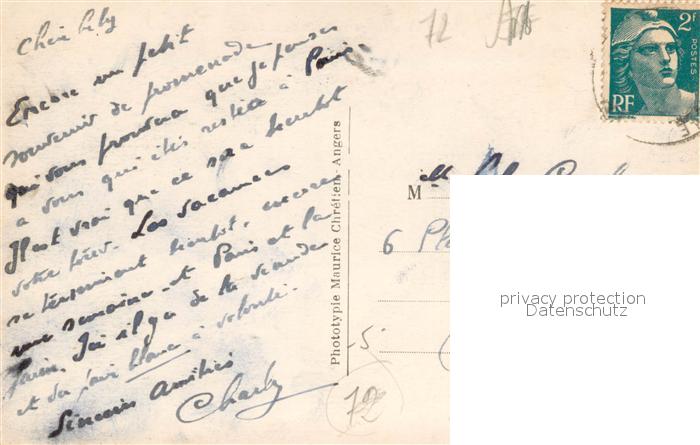 Chère Lily
Encore un petit
souvenir de promenade
qui vous prouvera que je pense
à vous qui êtes restée à Paris.
Il est vrai que ce sera bientôt
votre tour. Les vacances
se terminent bientôt, encore
une semaine et Paris et la
faim. Ici il y a de la viande
et du pain blanc à volonté.
Sincères Amitiés
Charly
72
2F
POSTES
RF
Phototypie Maurice Chrétien, Angers
Mlle
6
5
72
privacy protection
Datenschutz